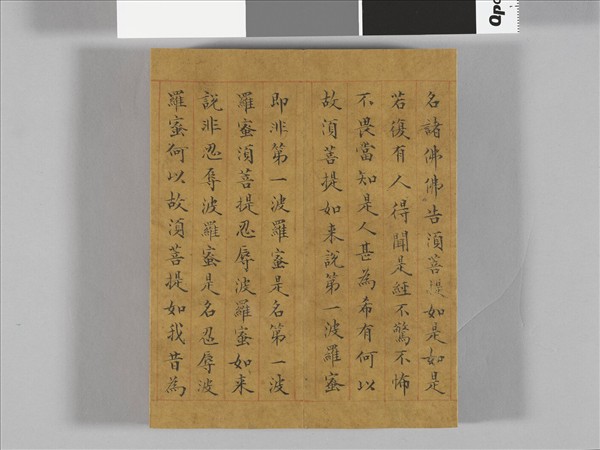 名諸佛佛告須菩提如是如是
若復有人得聞是經不驚不怖
不畏當知是人甚為希有何以
故須菩提如来說第一波羅蜜
即非第一波羅蜜是名第一波
羅蜜須菩提忍辱波羅蜜如来
說非忍辱波羅蜜是名忍辱波
羅蜜何以故須菩提如我昔為